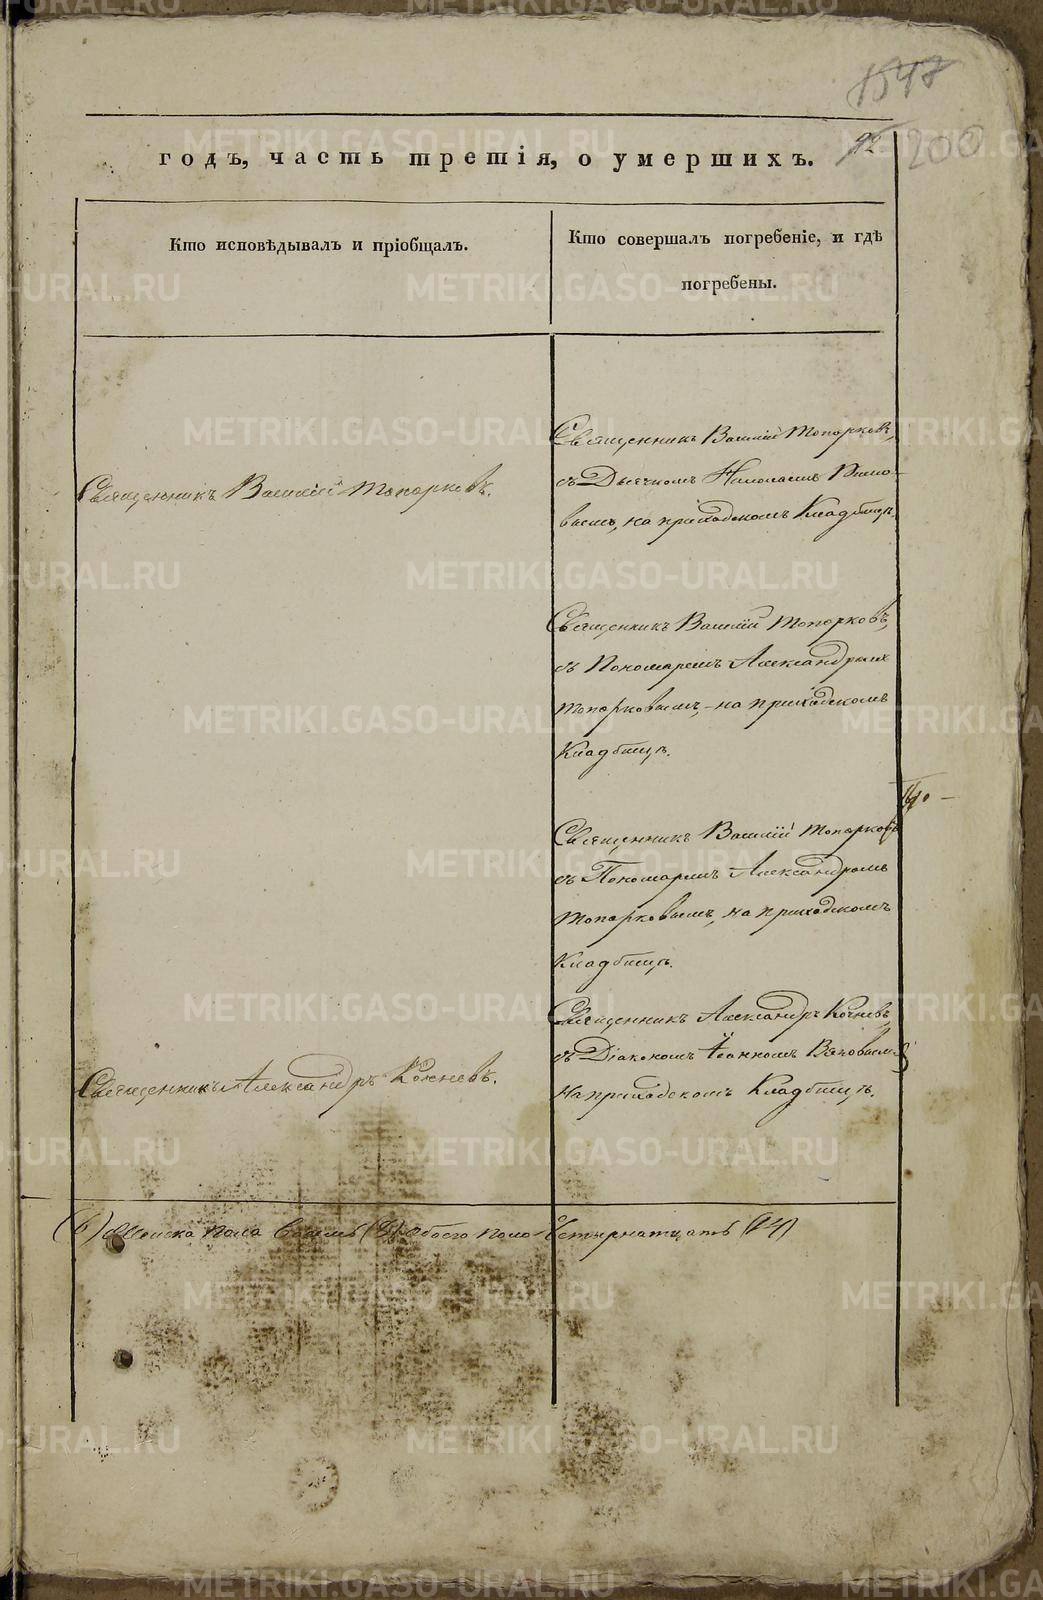 1547
92 200
годъ, часть третія, о умершихъ.
Кто исповѣдывалъ и пріобщалъ.
Кто совершалъ погребеніе, и гдѣ
погребены.
Священникъ Василій Топорковъ,
съ Дьячкомъ Николаемъ
на приходскомъ Кладбищѣ.
Священникъ Василій Топорковъ.
Священникъ Василій Топорковъ,
съ Пономаремъ Александромъ
Топорковымъ, на приходскомъ
Кладбищѣ.
Священникъ Василій Топорковъ
съ Пономаремъ Александромъ
Топорковымъ, на приходскомъ
Кладбищѣ.
Священникъ Александръ Кочневъ,
съ Діакономъ Іоанномъ
на приходскомъ Кладбищѣ.
Священникъ Александръ Кочневъ.
(6) Женска пола восемь (8) обоего пола Четырнатцать (14)
METRIKI.GASO-URAL.RU